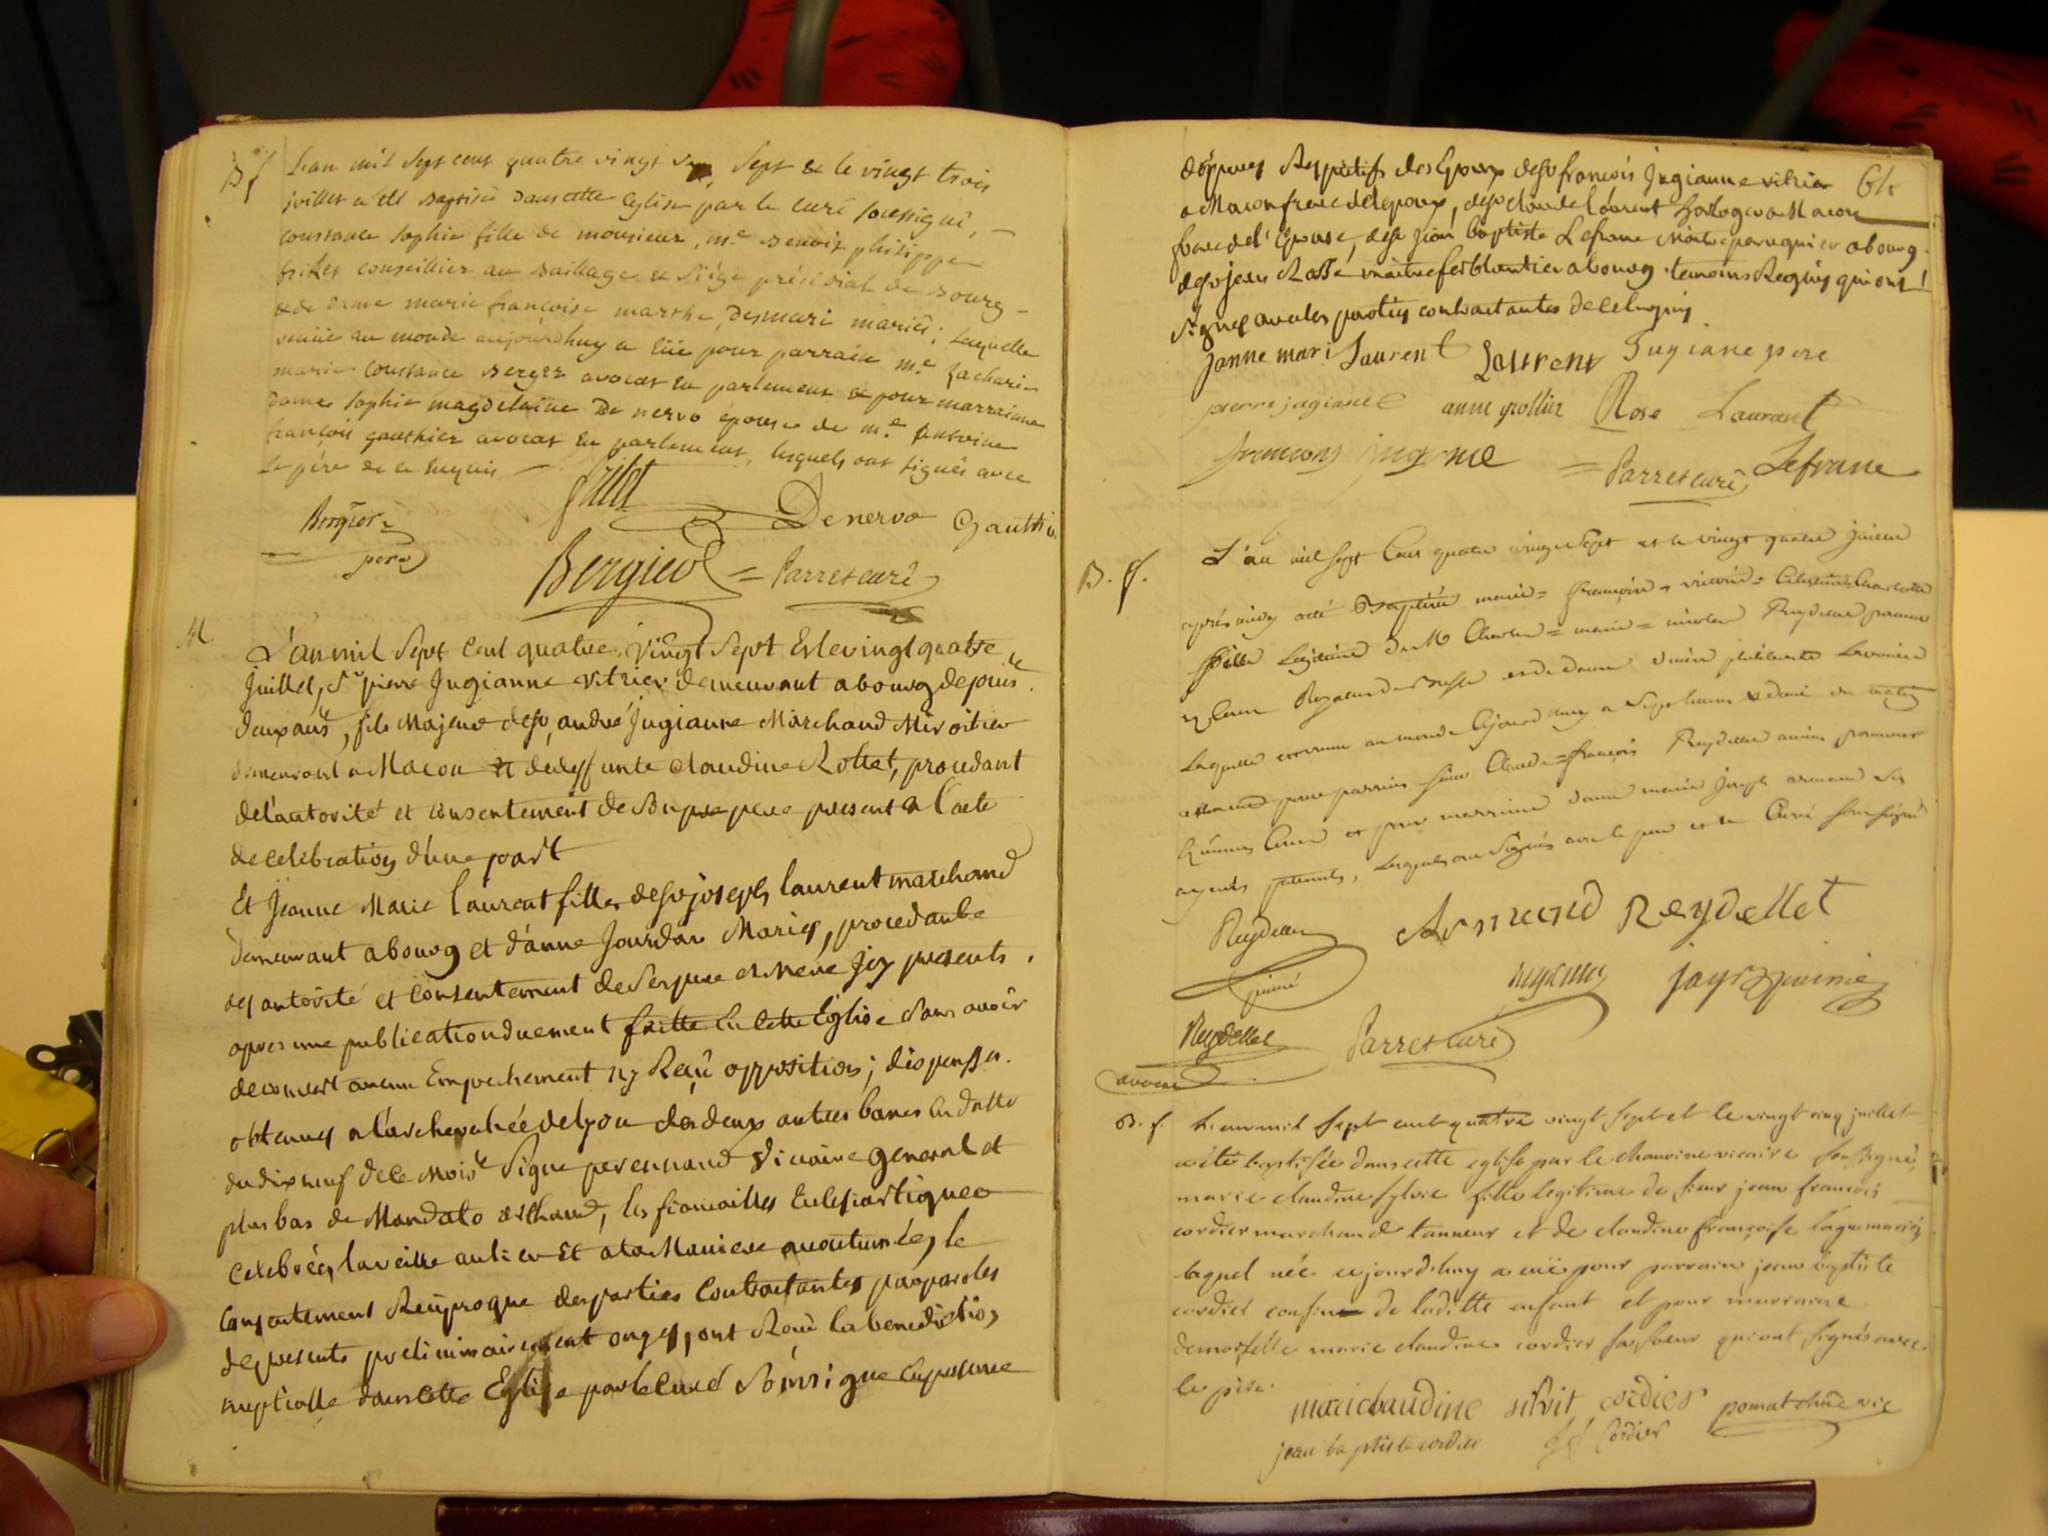 B f
L'an mil Sept cent quatre vingt Sept & le vingt trois
juillet a été Baptisée dans cette Eglise par le curé soussigné,
constance sophie fille de monsieur, m.e Benoit philippe
fritet conseillier au Baillage & Siége présidial de Bourg
& de dame marie françoise marthe, Desmari mariés; laquelle
venüe au monde aujourdhuy a eüe pour parrain m.e Zacharie
marie constance Bergier avocat en parlement & pour marraine
Dame Sophie magdelaine De nervo épouse de m.e Antoine
françois gauthier avocat en parlement, lesquels ont signés avec
le pére de ce Enquis
fritet
Bergier
pere
De nervo
Gauthier
Bergier
Parret curé
M.
L'an mil Sept Cent quatre Vingt Sept Et le vingt quatre
Juillet, Sr pierre Jugianne vitrier demeurant a bourg depuis
deux ans, fils Majeur de Sr andré Jugianne Marchand Miroitier
demeurant a Macon et de deffunte claudine Rottet, procedant
de l'autorité et consentement de Son pere present a l'acte
de celebration d'une part
Et Jeanne Marie laurent fille de Sr joseph laurent marchand
demeurant a bourg et d'anne Jourdan Mariés, procedante
des autorité et consentement de Ses pere et Mere Icy presents,
apres une publication duement faitte En cette Eglise Sans avoir
decouvert aucun Empechement ny Reçû opposition; dispense
obtenues a l'archevechée de lyon des deux autres bans En datte
du dix neuf de ce Mois Signe perennaud Vicaire General et
plus bas de Mandato, les fiancailles Eclesiastiques
Celebrées la veille au Soir Et a la Maniere accoutumée, le
Consentement Reciproque des parties Contractantes par paroles
de presents preliminairement ouyes, ont Recû la benediction
nuptialle dans cette Eglise par le curé Soussigné En presence
64
d'épouses Respectifs des Epoux de Sr françois Jugianne vitrier
a Macon frere de l'epoux, de Sr claude laurent horloger a Macon
frere de l'Epouse, de Sr jean baptiste Lefranc Maitre perruquier a bourg
de Sr jean Rosse maitre ferblantier a bourg temoins Requis qui ont
Signés avec les parties contractantes de ce Enquis
janne mari Laurent
Laurent
Jugiane pere
pierre jugiane
anne grollier
Rose
Laurant
francois jugiane
Parret curé
Lefranc
B. f.
L'an mil sept Cent quatre vingt Sept et le vingt quatre juillet
après midy a été Baptisée marie = françoise = victoire = Celestine Charlotte
fille Légitime de M Charles = marie = nicolas Reydellet
Laquelle venue au monde Aujourd'huy a Sept heures & demi du matin
a eu pour parrain Sieur Claude = françois Reydellet ancien
Curé et pour marraine dame marie joseph armand
parents, lesquels ont Signés avec le pere et le Curé soussigné
Reydellet
Armand Reydellet
Reydellet
avocat
Parret curé
B. f.
L'an mil Sept cent quatre vingt Sept et le vingt cinq juillet
a été baptisée dans cette eglise par le chanoine vicaire soussigné,
marie claudine sylvie fille legitime de sieur jean françois
cordier marchand tanneur et de claudine françoise lagne mariés
laquel née cejourd'huy a eüe pour parrain jean baptiste
cordier cousin de laditte enfant et pour marraine
demoiselle marie claudine cordier sa soeur qui ont signés avec
le père.
marie claudine silvie cordier
pomat chne vic
jean baptiste cordier
j f Cordier